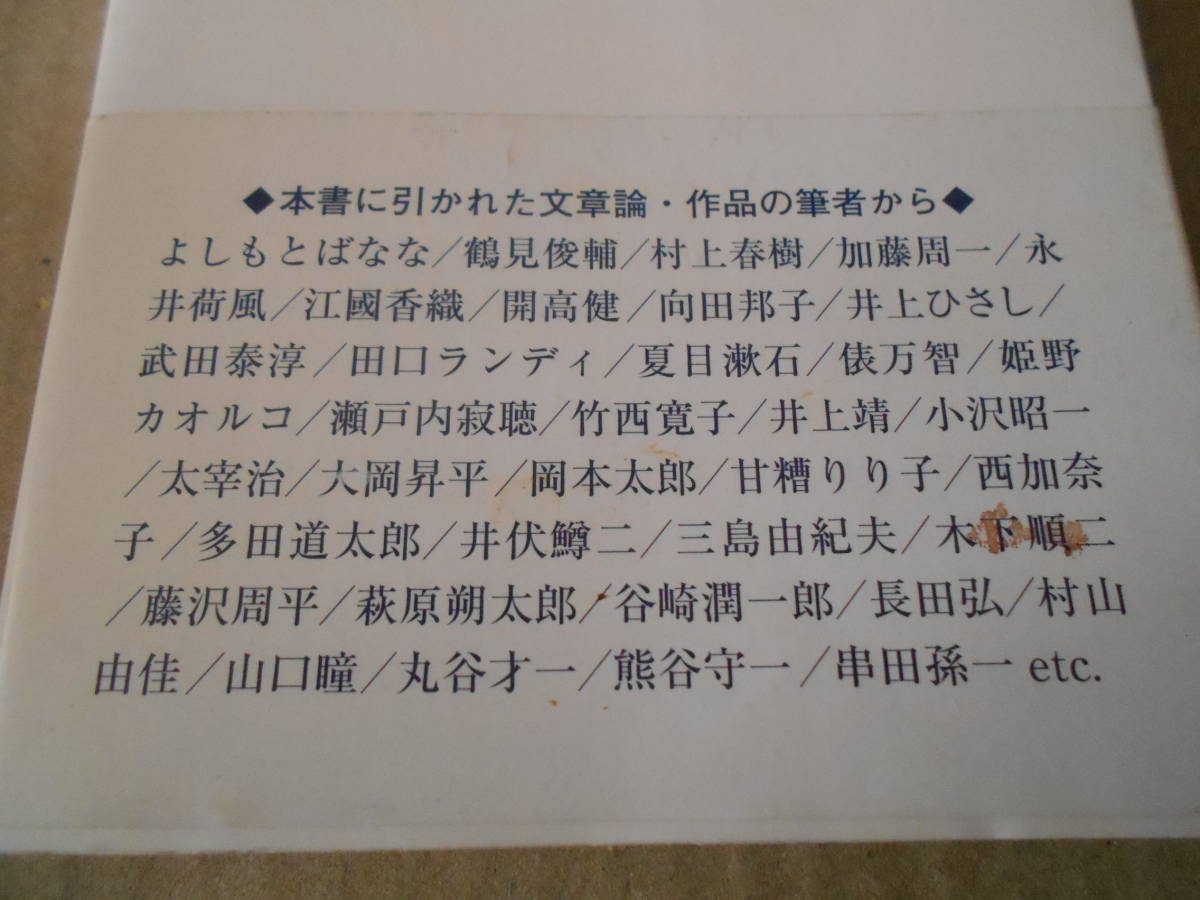 ◆本書に引かれた文章論・作品の筆者から◆
よしもとばなな/鶴見俊輔/村上春樹/加藤周一/永
井荷風/江國香織/開高健/向田邦子/井上ひさし/
武田泰淳/田口ランディ/夏目漱石/俵万智/姫野
カオルコ/瀬戸内寂聴/竹西寛子/井上靖/小沢昭一
/太宰治/大岡昇平/岡本太郎/甘糟りり子/西加奈
子/多田道太郎/井伏鱒二/三島由紀夫/木下順二
/藤沢周平/萩原朔太郎/谷崎潤一郎/長田弘/村山
由佳/山口瞳/丸谷才一/熊谷守一/串田孫一 etc.